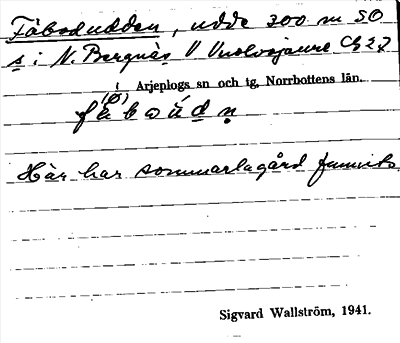 Fäbodudden, udde 300 m SO
s i N. Bergnäs V Uvolvojaure Ch 27
i Arjeplogs sn och tg, Norrbottens län.
(ö)
få b o ú d n
Här har sommarlagård funnits
Sigvard Wallström, 1941.